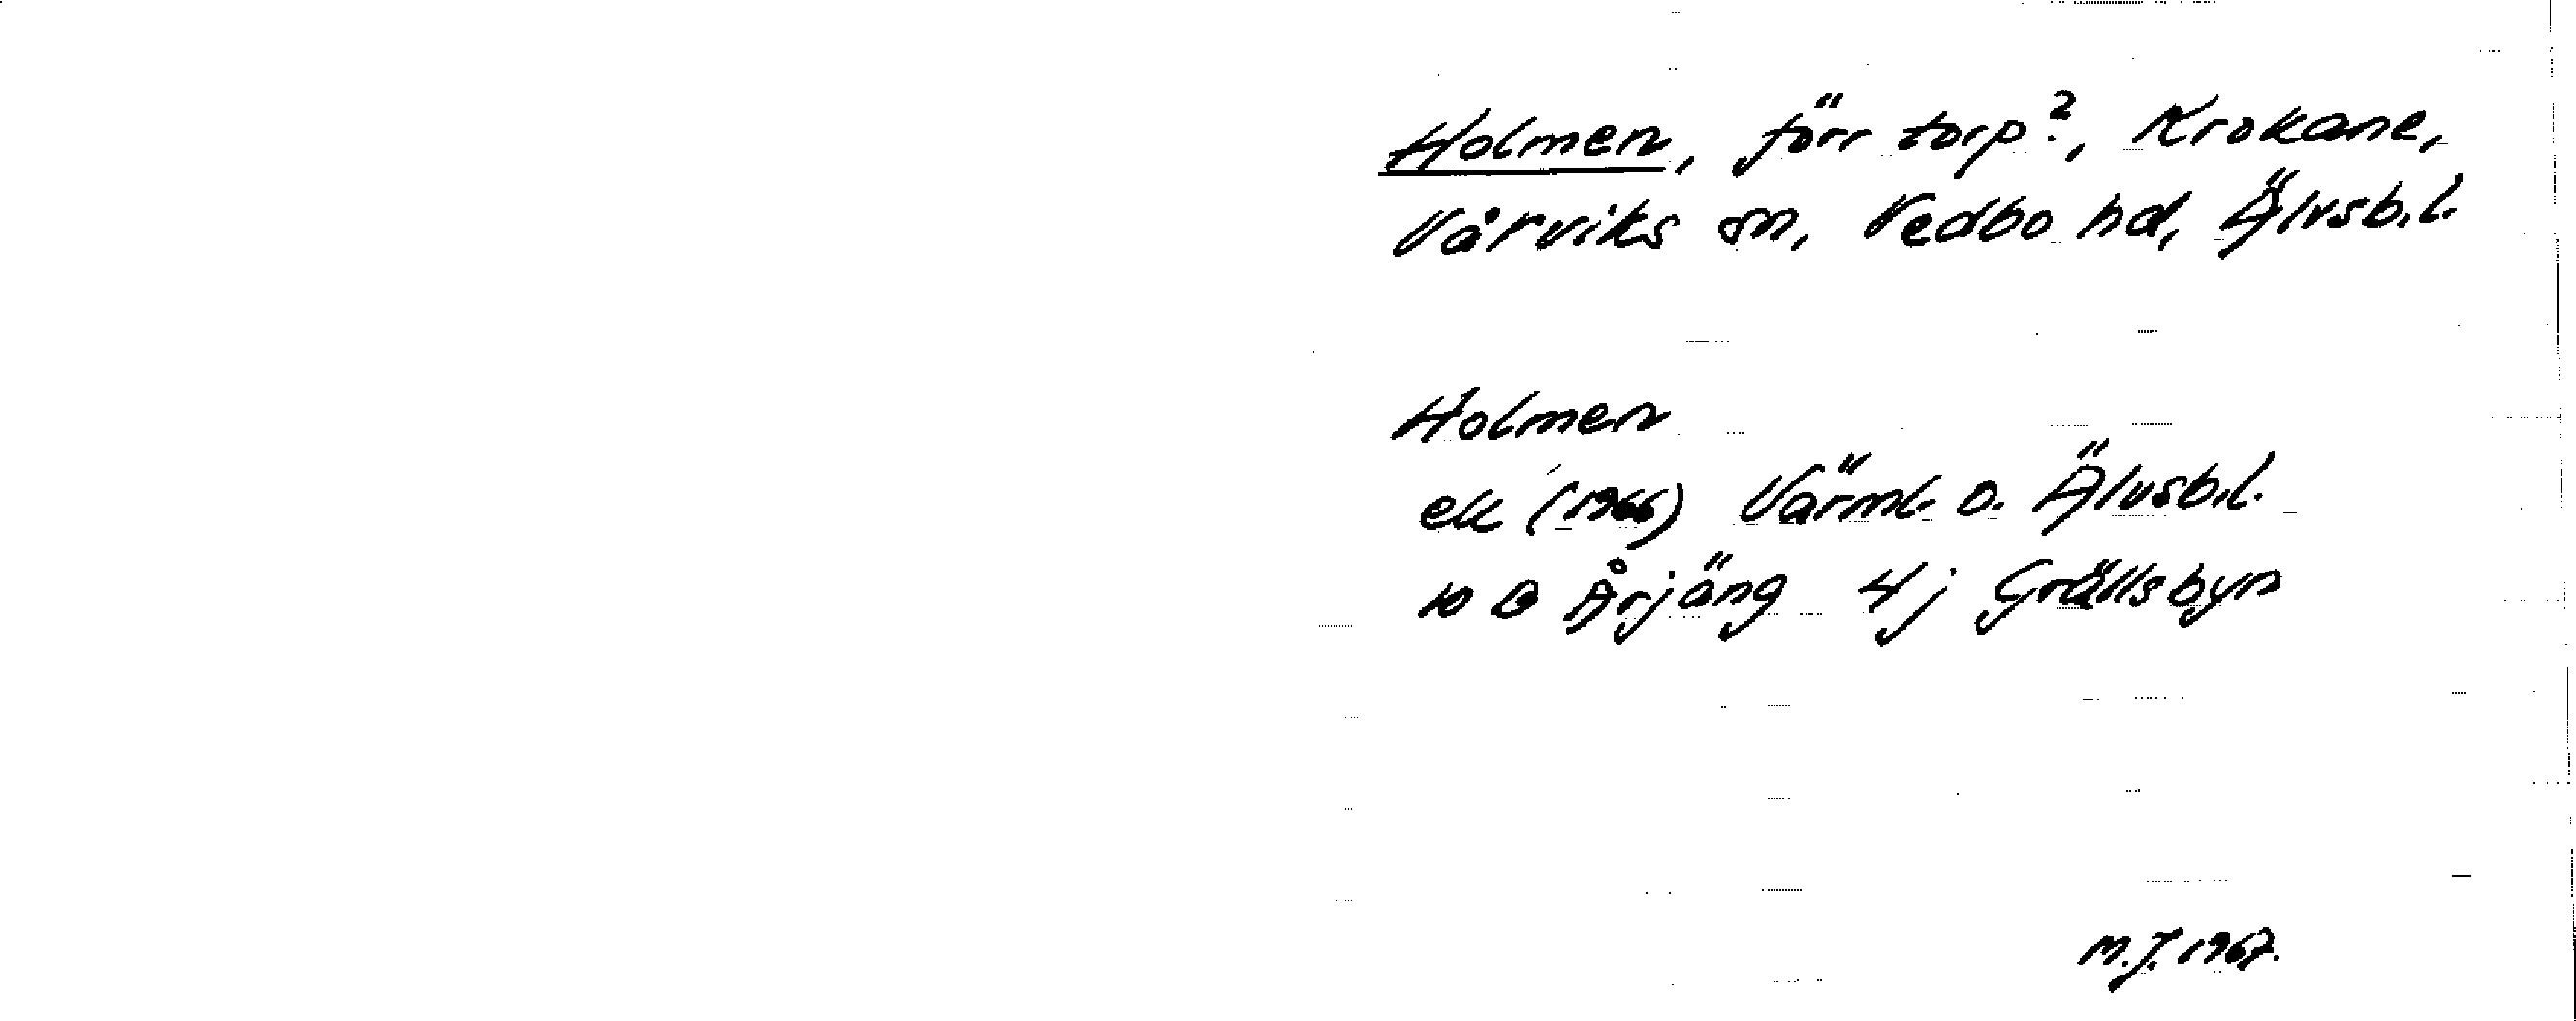 Holmen, förr torp?, Krokane,
Vårviks sn, Vedbo hd, Älvsb.l.
Holmen
ek (1966) Värml. o. Älvsb.l.
10 B Årjäng 4j Grällsbyn
M.J. 1967.